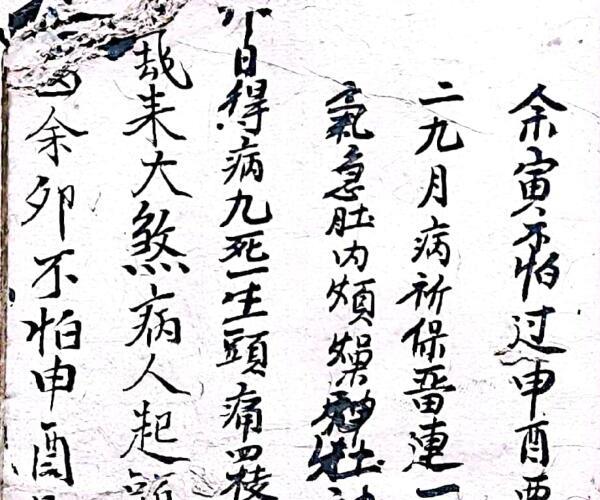 余寅不怕过申酉
二九月病祈保番連一
氣急肚内煩燥
日得病九死一生頭痛四枝
来大煞病人起
余卯不怕申酉